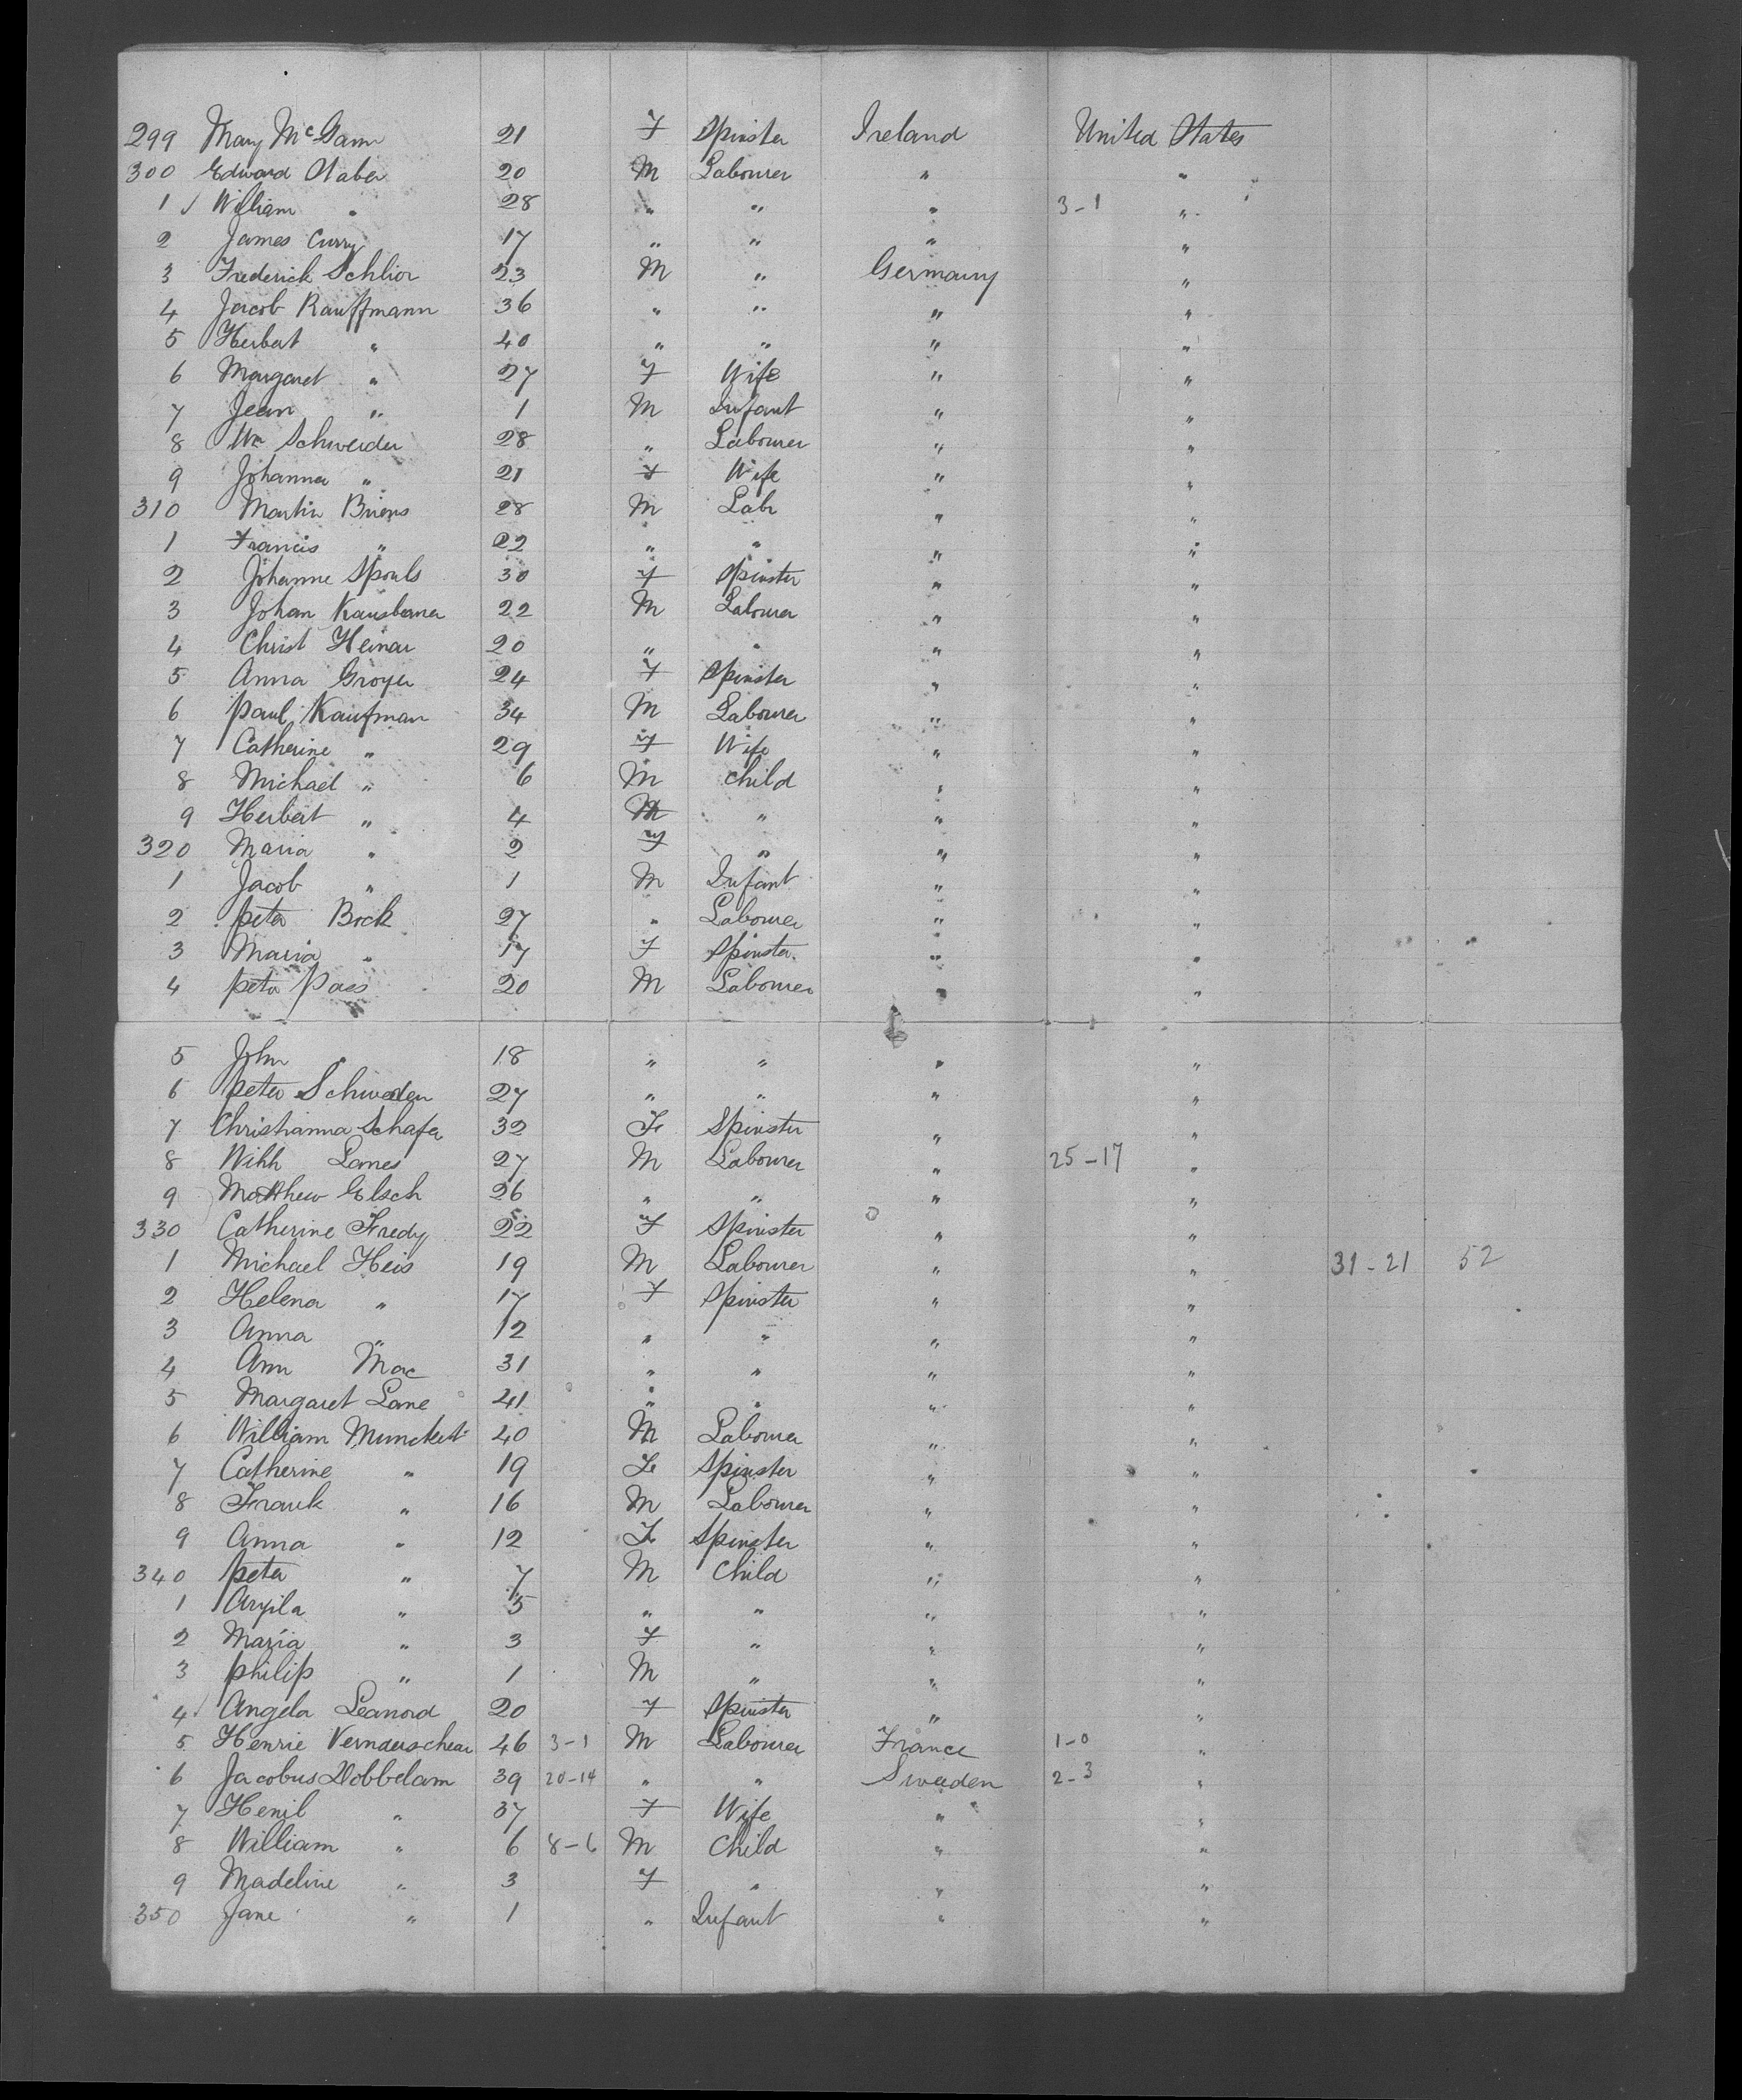 299 Mary McGann 21 F Spinster Ireland United States
300 Edward Staber 20 M Labourer " "
1 ✓ William " 28 " " " 3-1 "
2 James Curry 17 " " " "
3 Frederick Schlior 23 M " Germany "
4 Jacob Kauffmann 36 " " " "
5 Herbert " 40 " " " "
6 Margaret " 27 F Wife " "
7 Jean " 1 M Infant " "
8 Wm Schweider 28 " Labourer " "
9 Johanna " 21 F Wife " "
310 Martin Briens 28 M Labr " "
1 Francis " 22 " " " "
2 Johanne Spouls 30 F Spinster " "
3 Johan 22 M Labourer " "
4 Christ Heinar 20 " " " "
5 Anna Groyer 24 F Spinster " "
6 Paul Kaufman 34 M Labourer " "
7 Catherine " 29 F Wife " "
8 Michael " 6 M Child " "
9 Herbert " 4 M " " "
320 Maria " 2 F " " "
1 Jacob " 1 M Infant " "
2 Peter Bock 27 " Labourer " "
3 Maria " 17 F Spinster " "
4 Peter Paes 20 M Labourer " "
5 John " 18 " " " "
6 Peter Schweden 27 " " " "
7 Christianna Schafer 32 F Spinster " "
8 Wihh Lames 27 M Labourer " 25-17 "
9 Matthew Elsch 26 " " " "
330 Catherine Fredy 22 F Spinster " "
1 Michael Heis 19 M Labourer " " 31-21 52
2 Helena " 17 F Spinster " "
3 Anna " 12 " " " "
4 Ann Mac 31 " " " "
5 Margaret Lane 41 " " " "
6 William Munckert 40 M Labourer " "
7 Catherine " 19 F Spinster " "
8 Frank " 16 M Labourer " "
9 Anna " 12 F Spinster " "
340 Peter " 7 M Child " "
1 " 5 " " " "
2 Maria " 3 F " " "
3 Philip " 1 M " " "
4 ✓ Angela Leanord 20 F Spinster " "
5 Henrie 46 3-1 M Labourer France 1-0 "
6 Jacobus Dobbelam 39 20-14 " " Sweden 2-3 "
7 Henil " 37 F Wife " "
8 William " 6 8-6 M Child " "
9 Madeline " 3 F " " "
350 Jane " 1 " Infant " "